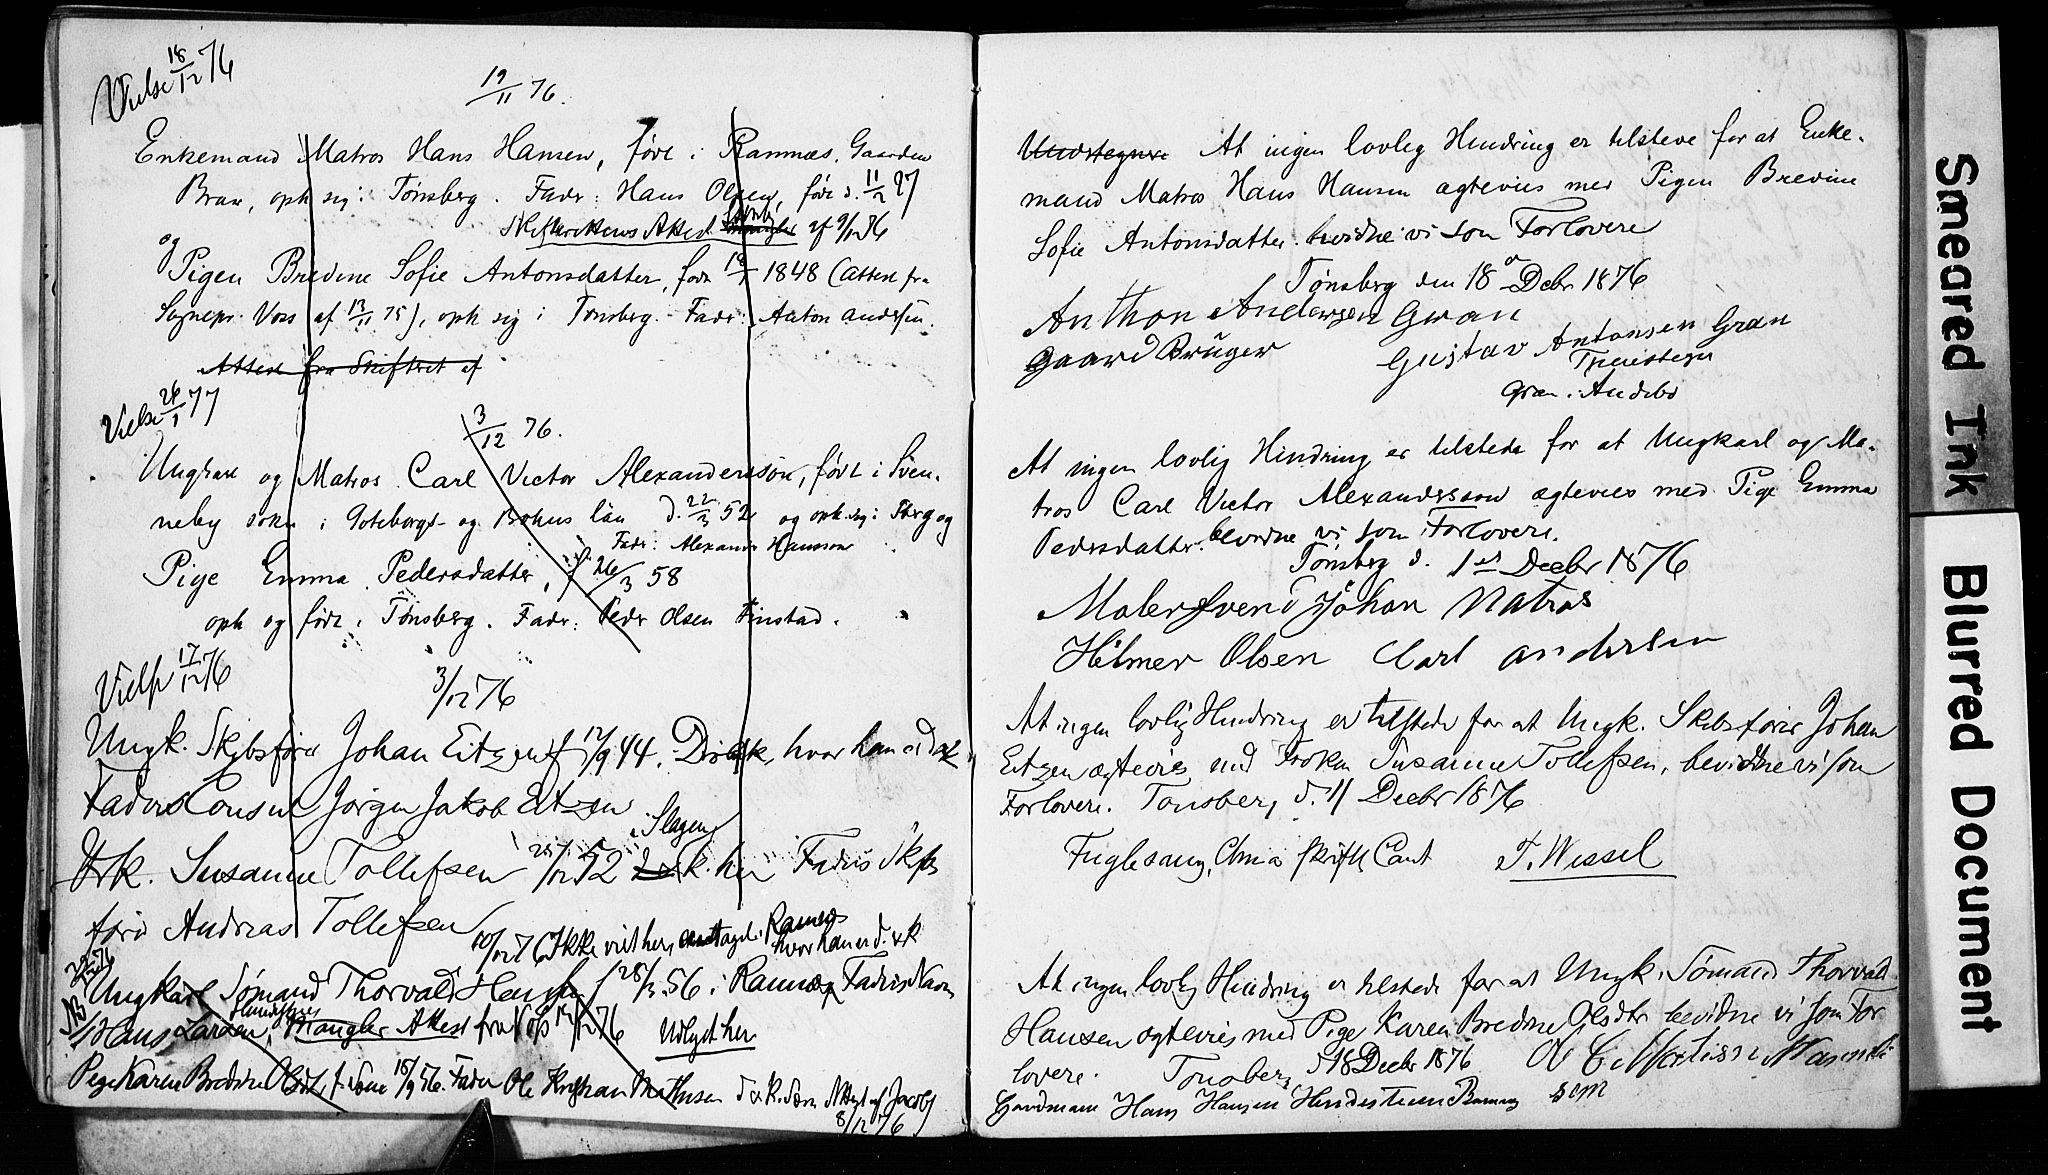 Vielse 18/12 76
19/11 76.
Enkemand Matros Hans Hansen, född i Ramnæs. Gaarden
Brar, oph sig i Tønsberg. Fader: Hans Olsen, föd d. 11/2 27
Skifterettens Attest af 9/12 76
og
Pigen Bredine Sofie Antonsdatter, född 18/7 1848 (Attest fra
Sognepr. Voss af 13/11 75), oph sig i Tønsberg. Fader: Anton Andersen
Attest fra Skiftret af
Vielse 26/1 77
3/12 76.
Ungkarl og Matros Carl Victor Alexandersson, födt i Sven-
neby soken i Göteborgs- og Bohus län d. 22/3 52 og oph. sig i Tbrg og
Fader: Alexander Hansson
Pige Emma Pedersdatter, f. 26/3 58
oph og födt i Tønsberg. Fader: Peder Olsen Finstad.
Vielse 17/12 76
3/12 76
Ungk. Skibsfører Johan Eitzen f 12/9 44. Drøbak, hvor han er d ok
Faders Consul Jörgen Jakob Eitzen
i Slagen
Frk. Susanne Tollefsen 12 52 k. her Faders Skps
förer Andreas Tollefsen
10/12 76 (Ikke viet her, Ramnes
hvor han er d. & k
Ungkarl Sømand Thorvald Hansen f 28/3 56 i Ramnæs Faders Navn
Hans Larsen, Mangler Attest fra Vofs 14/12 76 Udlyst her
Pige Karen Bredine Olsdt, f. Sem 15/9 56. Fader Ole Kristian Mathisen d & k. Sem Attest af Jacobs
8/12 76
Undtegnere At ingen lovlig Hindring er tilstede for at Enke-
mand Matros Hans Hansen ægtevies med Pigen Bredine
Sofie Antonsdatter bevidne vi som Forlovere
Tønsberg den 18de Decbr 1876
Anthon Andersen Gran
Gaard Brüger
Gustav Antonsen Gran
Gran i Andebo
At ingen lovlig Hindring er tilstede for at Ungkarl og Ma-
tros Carl Victor Alexandersson ægtevies med Pige Emma
Pedersdatter bevidne vi som Forlovere.
Tønsberg d. 1st Decbr 1876
Maler Svend Johan Matros
Hilmer Olsen Carl Andersen
At ingen lovlig Hindring er tilstede for at Ungk. Skibsfører Johan
Eitzen ægtevies med Frøken Susanne Tollefsen, bevidne vi som
Forlovere. Tønsberg d. 11 Decbr 1876
Fuglesang, T. Wessel
At ingen lovlig Hindring er tilstede for at Ungk. Sømand Thorvald
Hansen ægtevies med Pige Karen Bredine Olsdtr bevidne vi som For
lovere. Tønsberg d 18 Decbr 1876
Gardmand Hans Hansen Ramnes Sem
Smeared Ink
Blurred Document